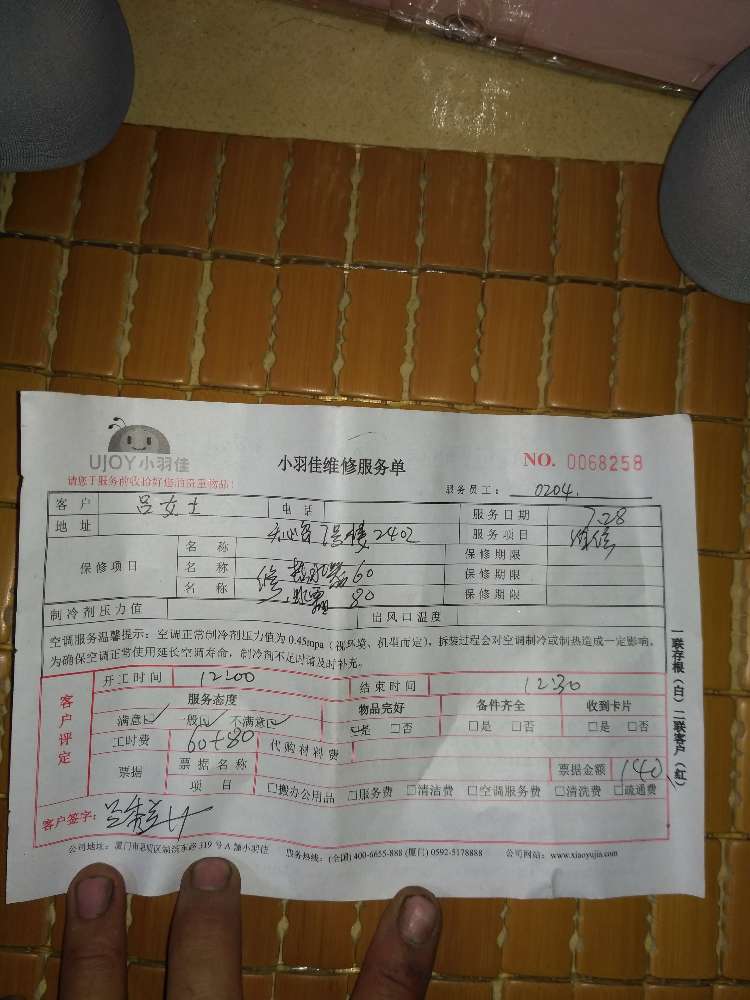 UJOY小羽佳
小羽佳维修服务单
NO. 0068258
请您于服务前收拾好您的贵重物品!
服务员工: 0204.
客户 吕女士 电话 服务日期 7.28
地址 7号楼2402 服务项目 维修
保修项目
名称 保修期限
名称 修热水器60 保修期限
名称 80 保修期限
制冷剂压力值 出风口温度
空调服务温馨提示:空调正常制冷剂压力值为0.45mpa(视环境、机型而定),拆装过程会对空调制冷或制热造成一定影响,
为确保空调正常使用延长空调寿命,制冷剂不足时请及时补充。
客户评定
开工时间 12:00 结束时间 12:30
服务态度 物品完好 备件齐全 收到卡片
满意☑ 一般☑ 不满意☑ ☑是 □否 □是 □否 □是 □否
工时费 60+80 代购材料费
票据 票据名称 票据金额 140
项目 □搬办公用品 □服务费 □清洁费 □空调服务费 □清洗费 □疏通费
客户签字:
公司地址: 厦门市 319号A 小羽佳 服务热线: (全国) 400-6655-888 (厦门) 0592-5178888 公司网站: www.xiaoyujia.com
一联存根(白)二联客户(红)